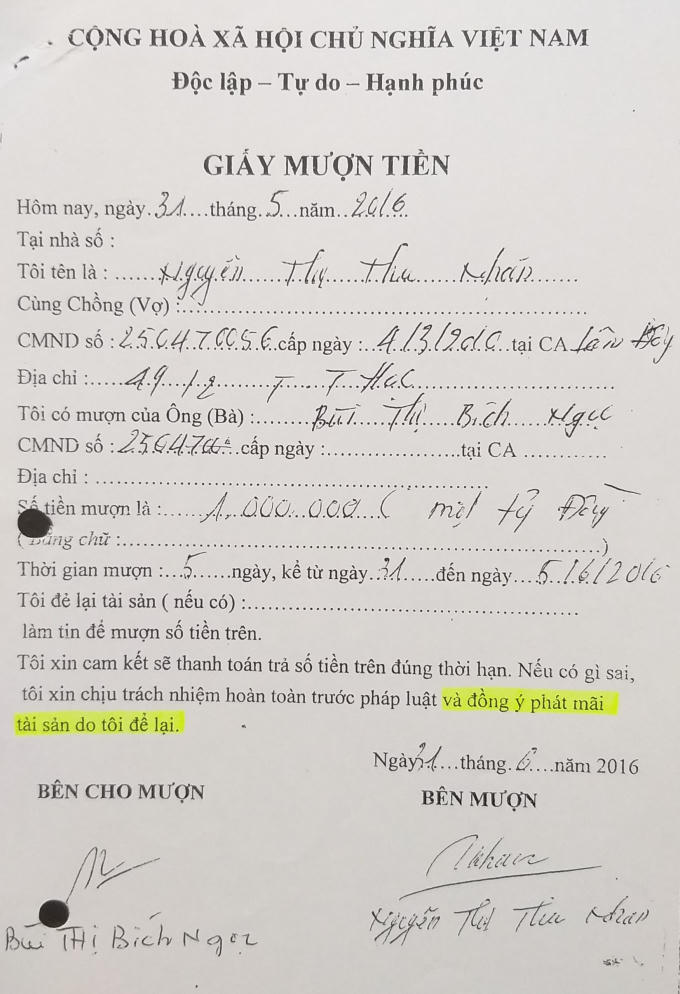 CỘNG HOÀ XÃ HỘI CHỦ NGHĨA VIỆT NAM
Độc lập – Tự do – Hạnh phúc
GIẤY MƯỢN TIỀN
Hôm nay, ngày.31....tháng.5...năm..2016.
Tại nhà số :
Tôi tên là : ......Nguyễn......Thị....Thu......Nhàn......
Cùng Chồng (Vợ) :......................................................
CMND số : 250470056 cấp ngày :..4/3/2010..tại CA Lâm Đồng
Địa chỉ :.....49/12......T......T......
Tôi có mượn của Ông (Bà) :........Bùi....Thị....Bích....Ngọc
CMND số : cấp ngày :....................tại CA .............
Địa chỉ : ......................................................
Số tiền mượn là :......1.000.000.( một tỷ Đồng
( Bằng chữ :......................................................)
Thời gian mượn :...5......ngày, kể từ ngày.31.....đến ngày....5/6/2016
Tôi đẻ lại tài sản ( nếu có) :..............................................
làm tin để mượn số tiền trên.
Tôi xin cam kết sẽ thanh toán trả số tiền trên đúng thời hạn. Nếu có gì sai,
tôi xin chịu trách nhiệm hoàn toàn trước pháp luật và đồng ý phát mãi
tài sản do tôi để lại.
Ngày31....tháng..6....năm 2016
BÊN CHO MƯỢN
BÊN MƯỢN
Nhan
Bùi THị Bích Ngọc
Nguyễn Thị Thu Nhàn